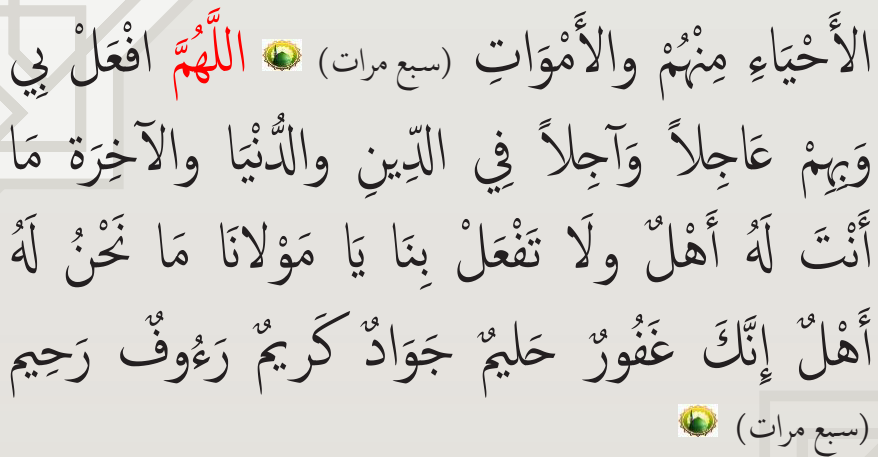 الأَحْيَاءِ مِنْهُمْ والأَمْوَاتِ (سبع مرات) اللَّهُمَّ افْعَلْ بِي
وَبِهِمْ عَاجِلاً وَآجِلاً فِي الدِّينِ والدُّنْيَا والآخِرَة مَا
أَنْتَ لَهُ أَهْلٌ ولَا تَفْعَلْ بِنَا يَا مَوْلانَا مَا نَحْنُ لَهُ
أَهْلٌ إِنَّكَ غَفُورٌ حَليمٌ جَوَادٌ كَريمٌ رَءُوفٌ رَحِيم
(سبع مرات)